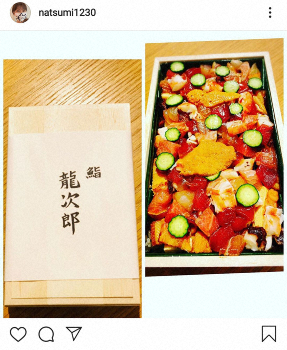 natsumi1230
鮨
龍次郎